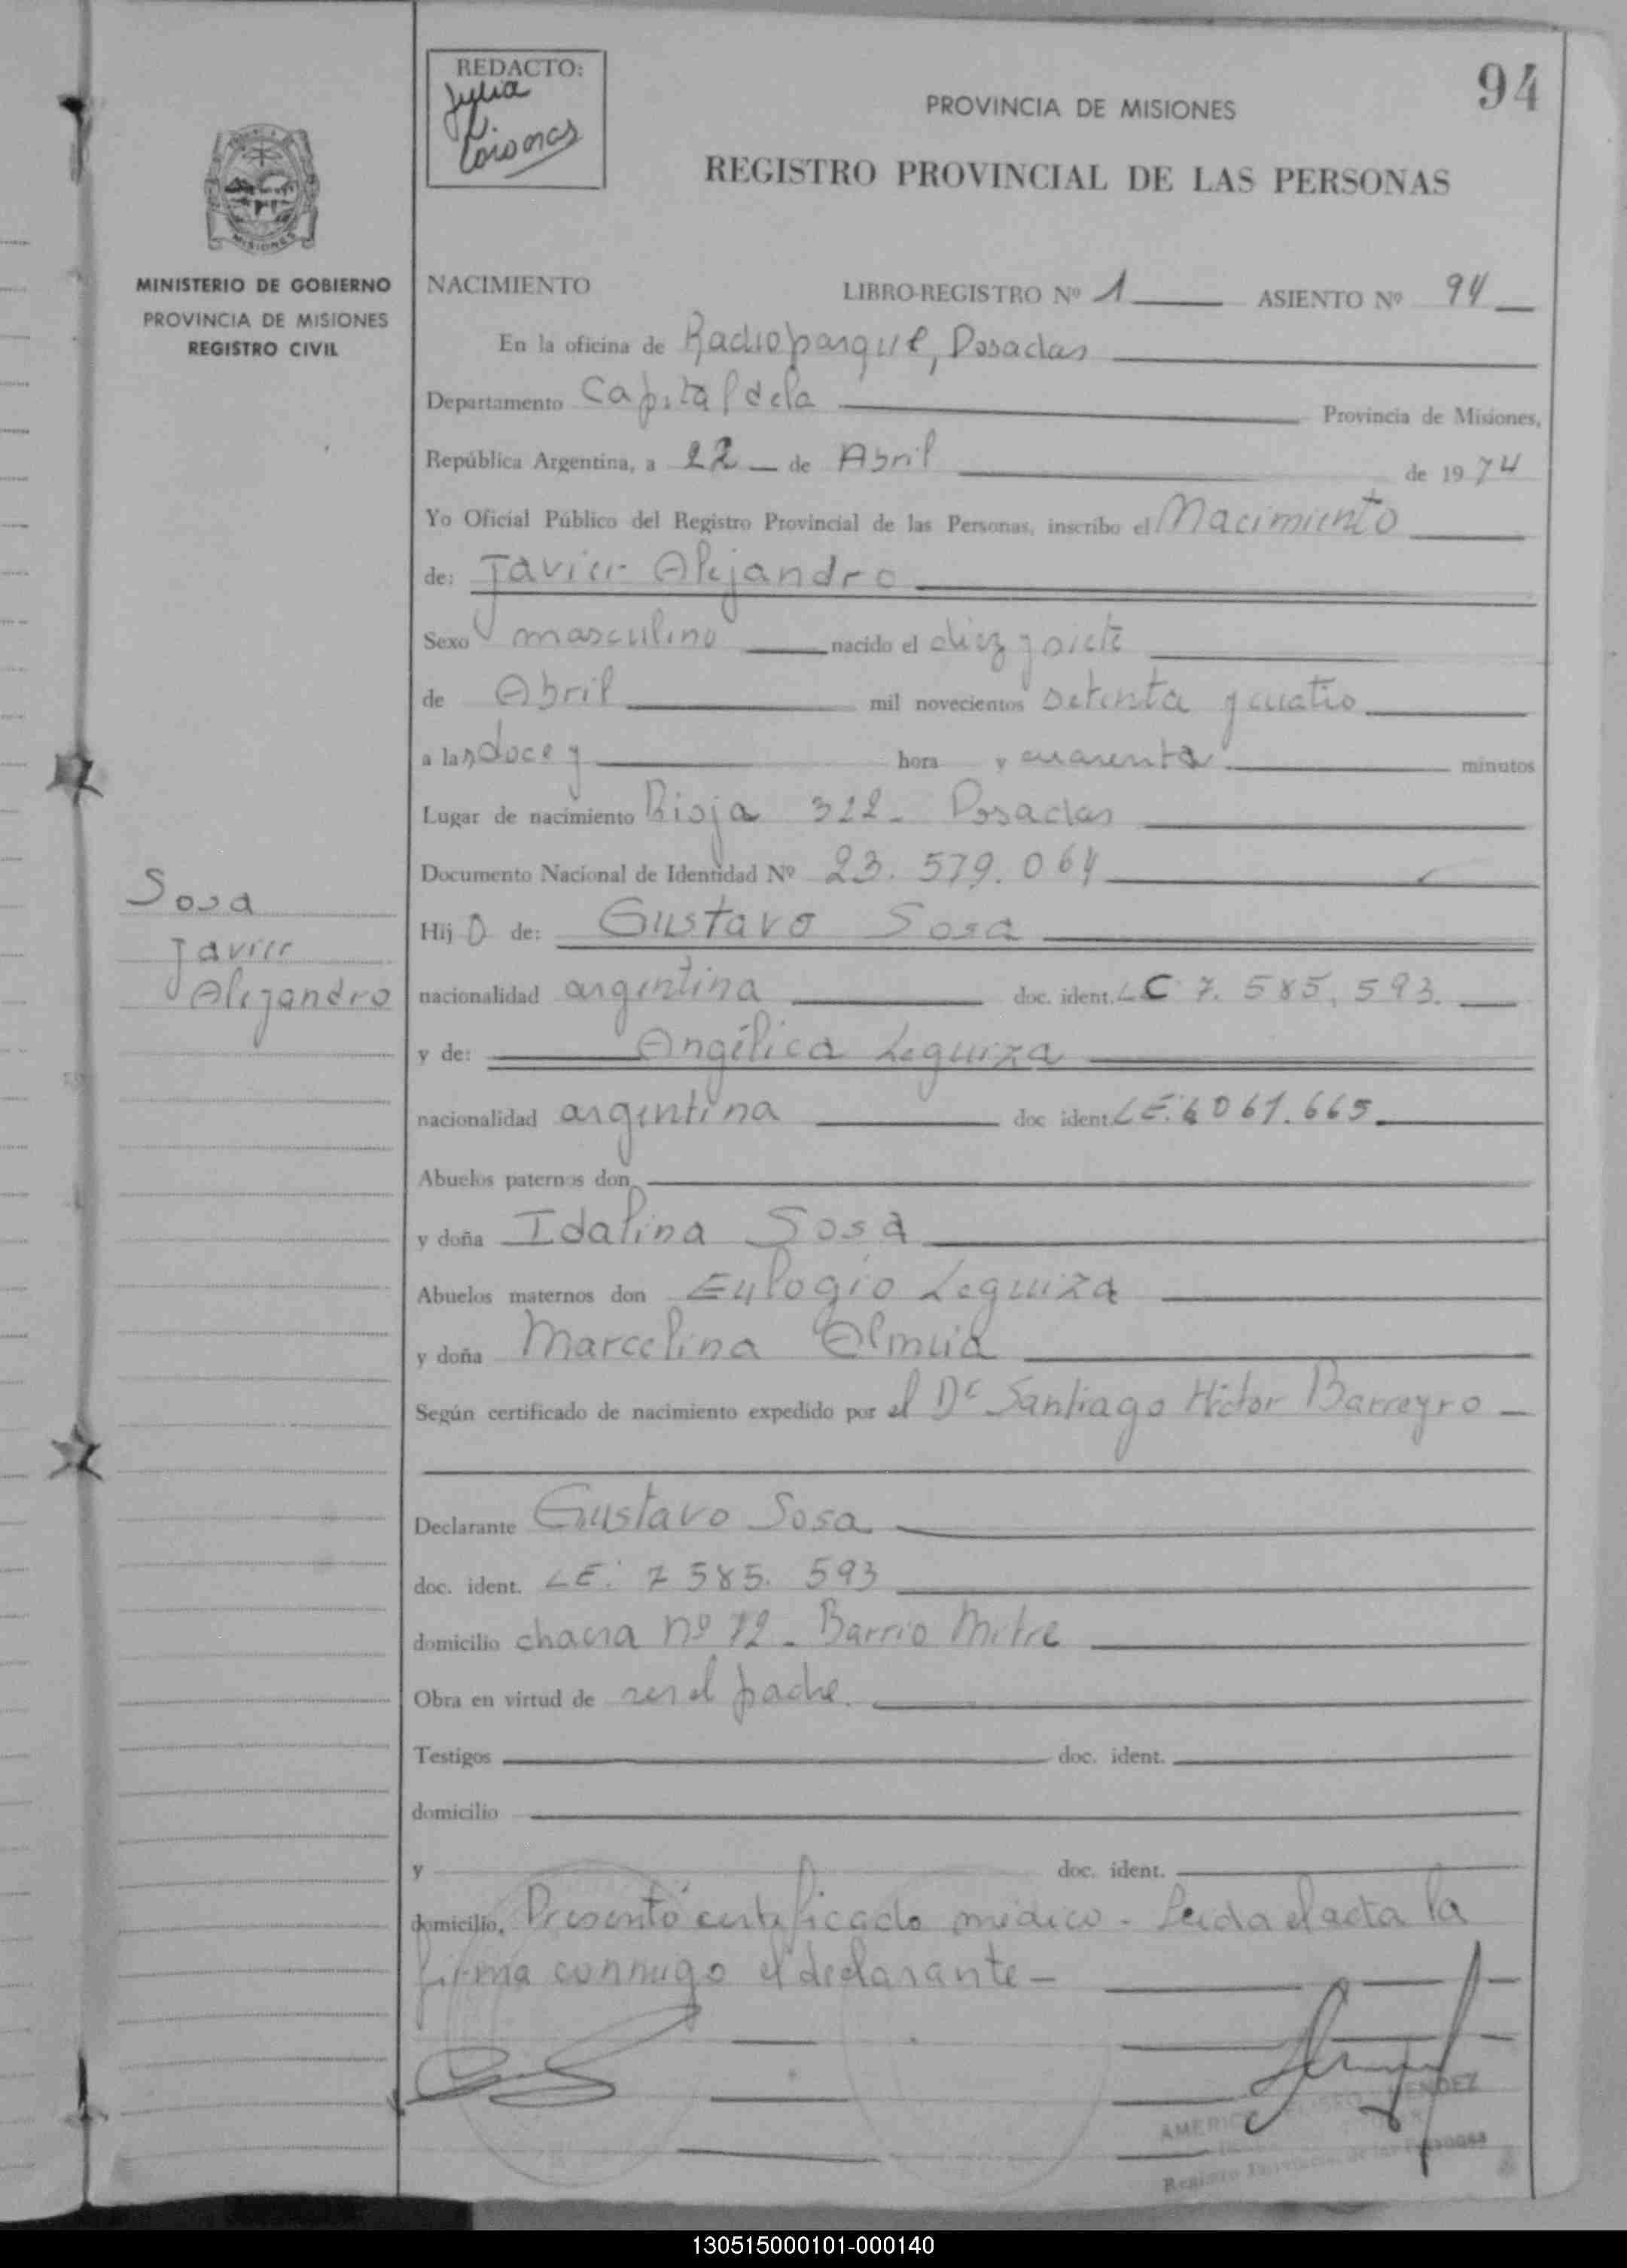 94
REDACTO:
Julia
PROVINCIA DE MISIONES
REGISTRO PROVINCIAL DE LAS PERSONAS
MISIONES
MINISTERIO DE GOBIERNO
PROVINCIA DE MISIONES
REGISTRO CIVIL
NACIMIENTO LIBRO-REGISTRO Nº 1 ASIENTO Nº 94
En la oficina de Radioparque, Posadas
Departamento Capital de la Provincia de Misiones,
República Argentina, a 22 de Abril de 1974
Yo Oficial Público del Registro Provincial de las Personas, inscribo el Nacimiento
de: Javier Alejandro
Sexo masculino nacido el diez y siete
de Abril mil novecientos setenta y cuatro
a las doce y hora y cuarenta minutos
Lugar de nacimiento Rioja 322 - Posadas
Documento Nacional de Identidad Nº 23.579.064
Sosa
Javier
Alejandro
Hijo de: Gustavo Sosa
nacionalidad argentina doc. ident. LC 7.585.593.
y de: Angélica Leguiza
nacionalidad argentina doc ident. LE. 6061.665
Abuelos paternos don
y doña Idalina Sosa
Abuelos maternos don Eulogio Leguiza
y doña Marcelina
Según certificado de nacimiento expedido por el Dr Santiago Hictor Barreyro
Declarante Gustavo Sosa
doc. ident. LE: 7585.593
domicilio chacra nº 72 - Barrio Mitre
Obra en virtud de ser el padre.
Testigos doc. ident.
domicilio
y doc. ident.
domicilio, Presentó certificado médico - Leida el acta la
firma conmigo el declarante -
MENDEZ
130515000101-000140